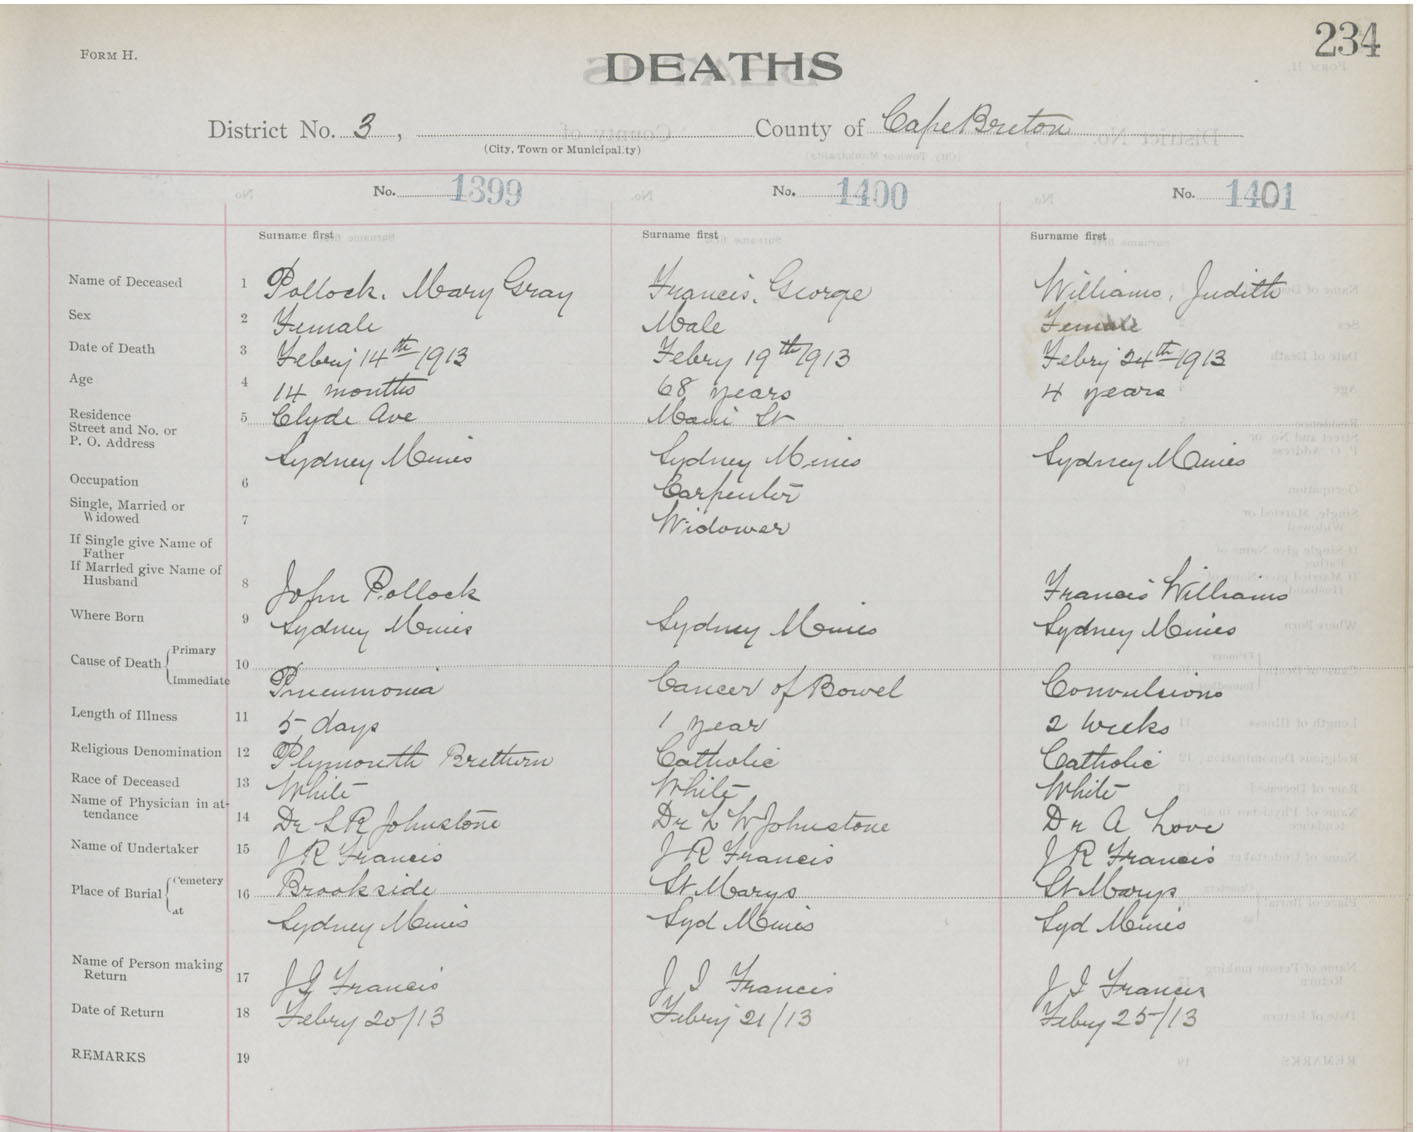 234
FORM H.
DEATHS
District No. 3, County of Cape Breton
(City, Town or Municipality)
No. 1399 No. 1400 No. 1401
Surname first Surname first Surname first
Name of Deceased 1 Pollock. Mary Gray Francis. George Williams, Judith
Sex 2 Female Male Female
Date of Death 3 Febry 14th 1913 Febry 19th 1913 Febry 24th 1913
Age 4 14 months 68 years 4 years
Residence Street and No. or P. O. Address 5 Clyde Ave Main St
Sydney Mines Sydney Mines Sydney Mines
Occupation 6 Carpenter
Single, Married or Widowed 7 Widower
If Single give Name of Father
If Married give Name of Husband 8 John Pollock Francis Williams
Where Born 9 Sydney Mines Sydney Mines Sydney Mines
Cause of Death Primary 10
Immediate Pneumonia Cancer of Bowel Convulsions
Length of Illness 11 5 days 1 year 2 weeks
Religious Denomination 12 Plymouth Brethern Catholic Catholic
Race of Deceased 13 White White White
Name of Physician in attendance 14 Dr L R Johnstone Dr L W Johnstone Dr A Love
Name of Undertaker 15 J R Francis J R Francis J R Francis
Place of Burial Cemetery 16 Brookside St Marys St Marys
at Sydney Mines Syd Mines Syd Mines
Name of Person making Return 17 J I Francis J I Francis J I Francis
Date of Return 18 Febry 20/13 Febry 21/13 Febry 25/13
REMARKS 19